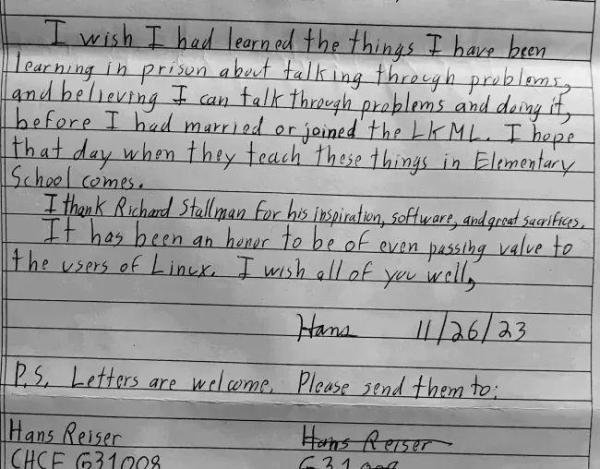 I wish I had learned the things I have been
learning in prison about talking through problems,
and believing I can talk through problems and doing it,
before I had married or joined the LKML. I hope
that day when they teach these things in Elementary
School comes.
I thank Richard Stallman for his inspiration, software, and great sacrifices.
It has been an honor to be of even passing value to
the users of Linux. I wish all of you well,
Hans 11/26/23
P.S. Letters are welcome. Please send them to:
Hans Reiser Hans Reiser
CHCF G31008